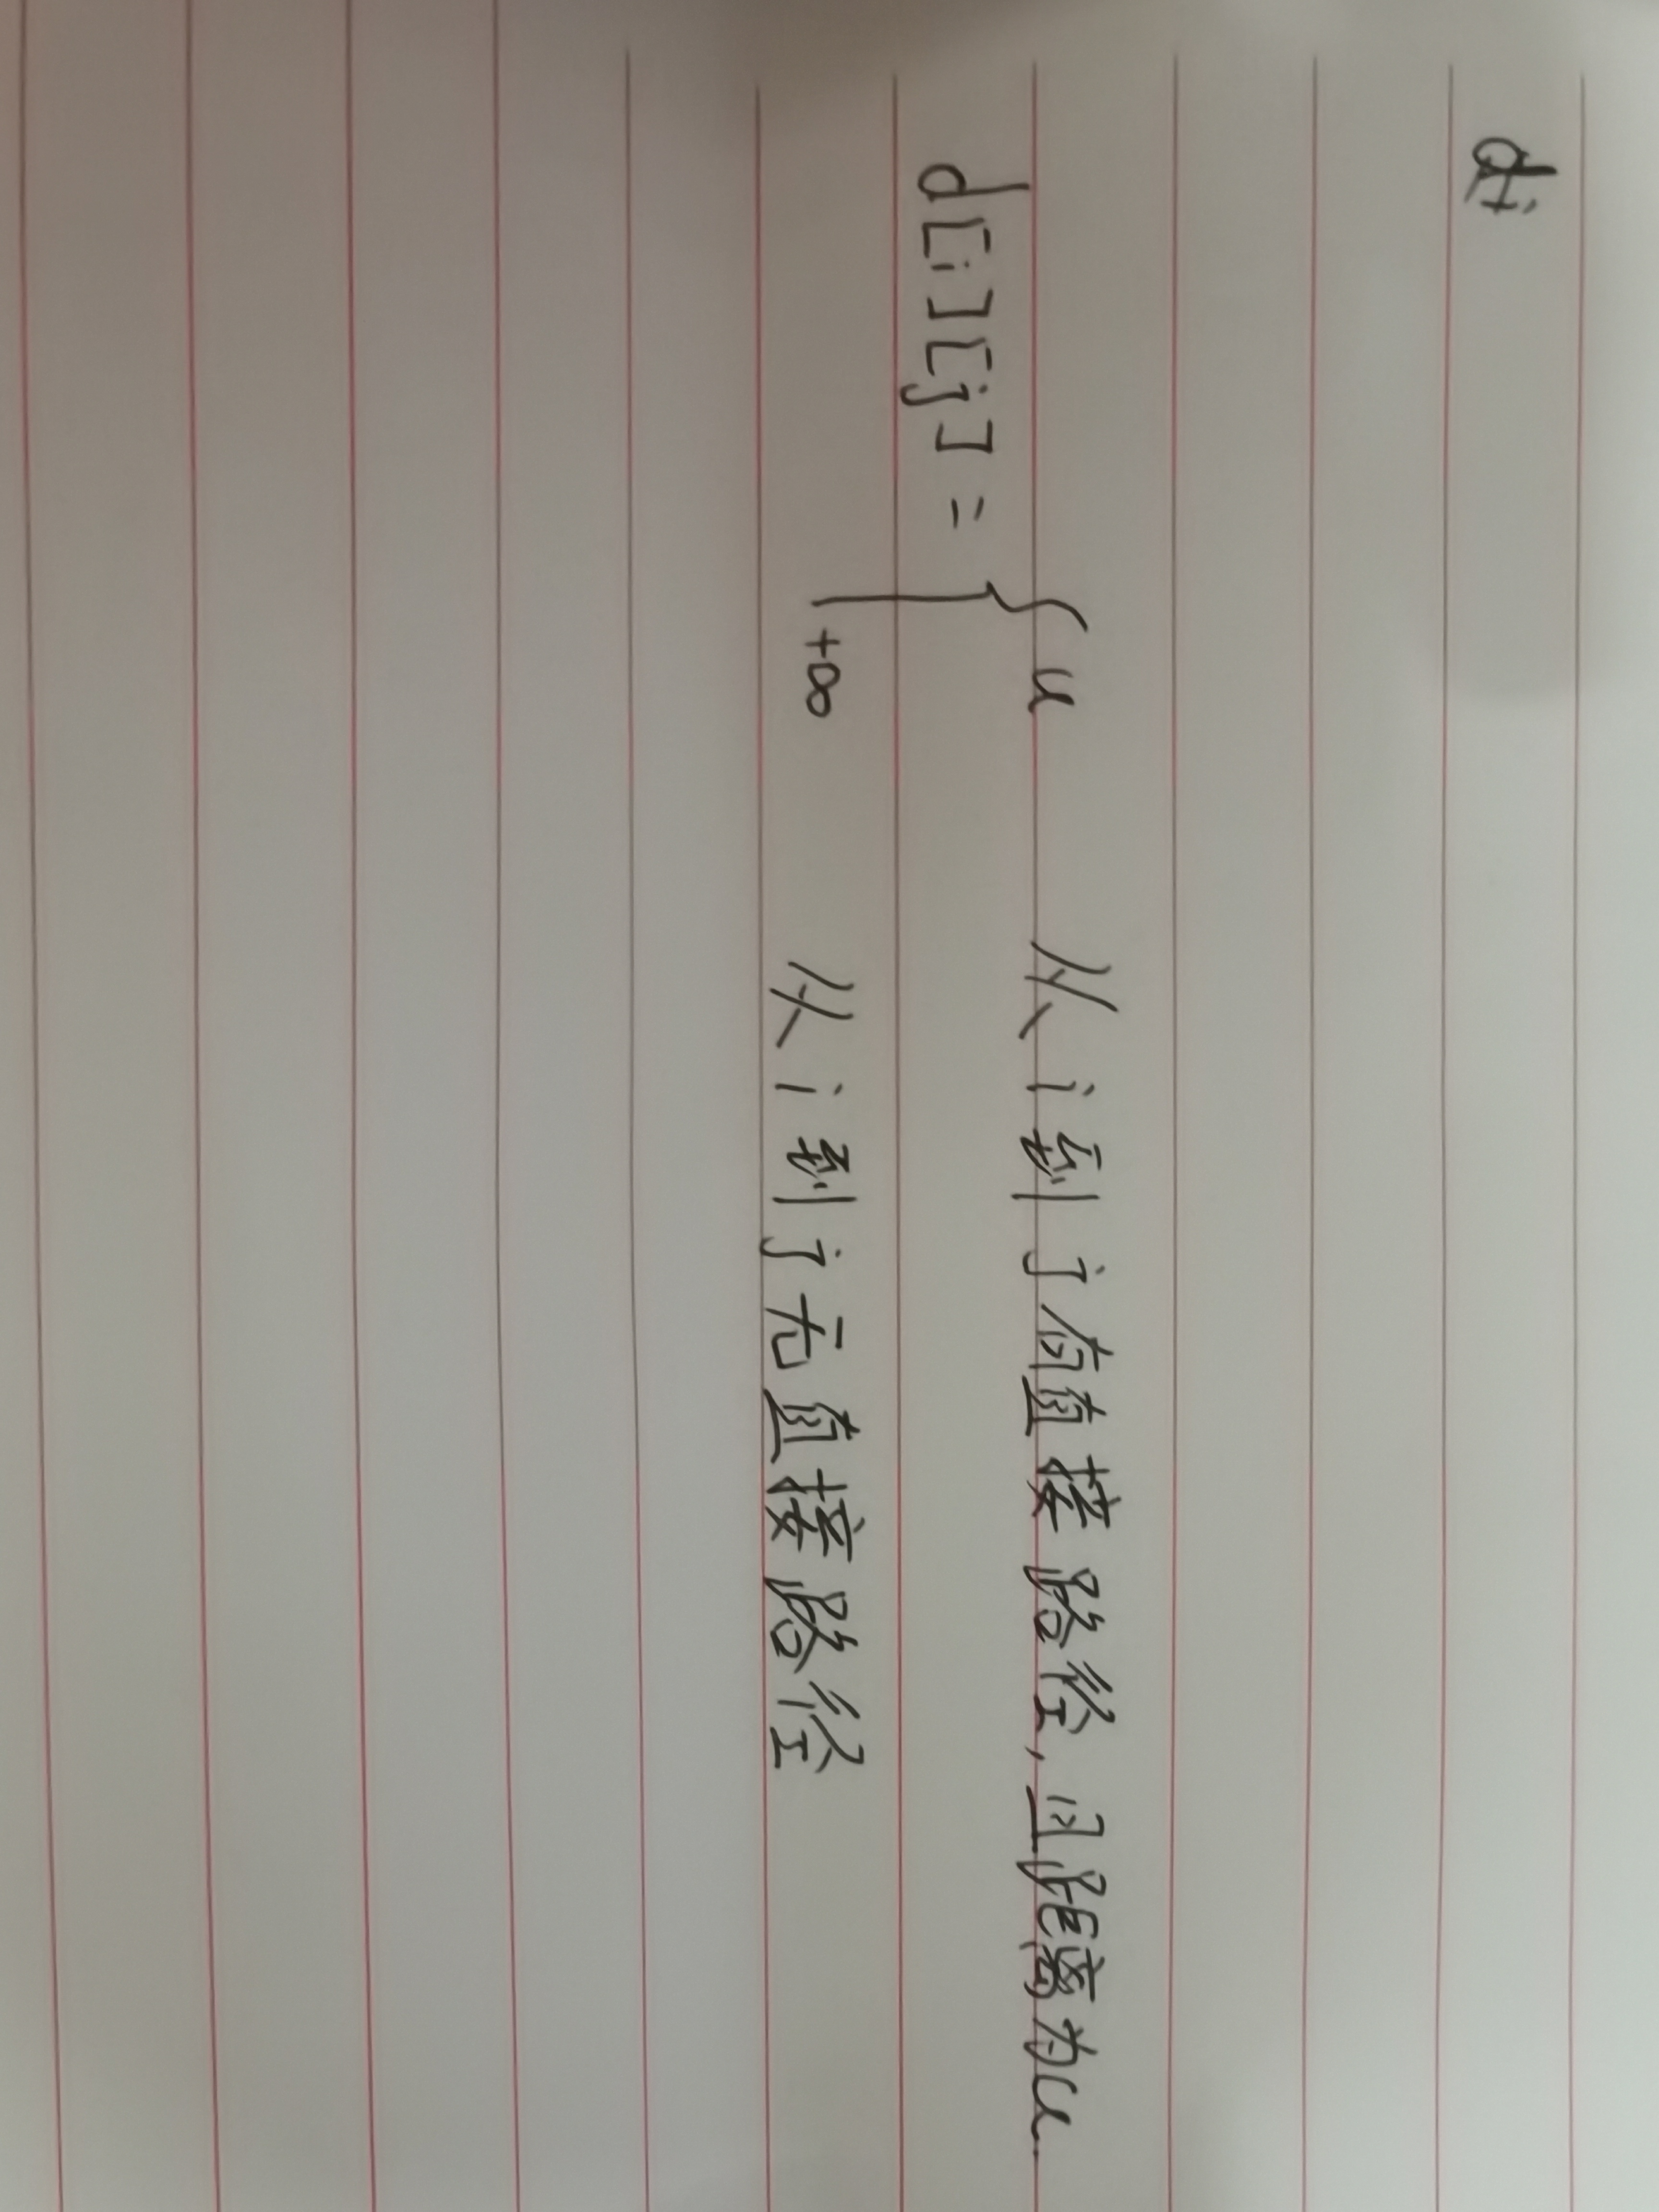 d[i][j] = { u 从i到j有直接路径,且距离为u.
+∞ 从i到j无直接路径